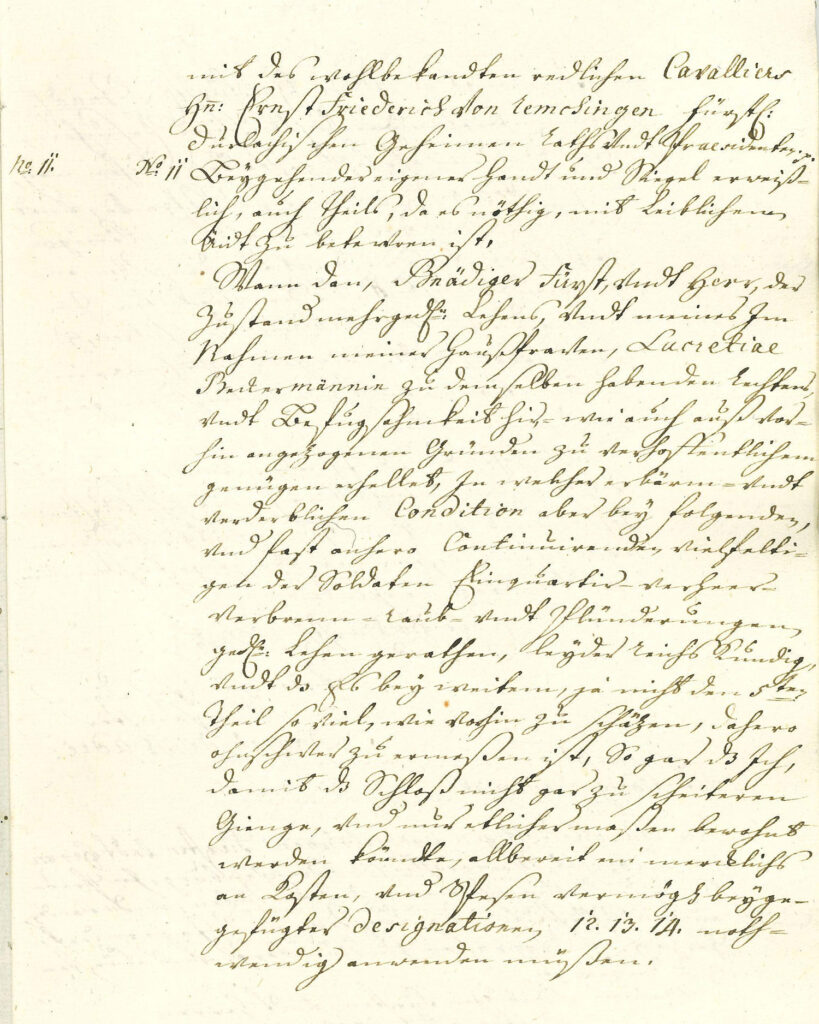 mit des wohlbekandten redlichen Cavalliers
Hn: Ernst Friederich von Remchingen Fürstl:
Durlachischen Geheimen Raths undt Praesidenten p.
No. 11. No 11 Beygehender eigener Handt und Siegel erweiß-
lich, auch Theils, da es nöthig, mit Leiblichem
Aidt zu betewren ist,
Wann dan, Gnädiger Fürst, undt Herr, der
Zustand mehrged: Lehens, undt meines Im
Nahmen meiner Haußfrawen, Lucretiae
zu demselben habenden Rechtens,
undt Befugsahmkeit hir- wie auch auß vor-
hin angezogenen Gründen zu verhoffentlichem
genügen erhellet, In welcher erbärm- undt
verderblichen Condition aber bey folgenden,
und fast anhero Continuirenden vielfälti-
gen der Soldaten Einquartir- verheer-
verbrenn- Raub- undt Plünderungen
ged: Lehen gerathen, leyder Reichs Kündig,
undt dz Es bey weitem, ja nicht den 5ten
Theil so viel, wie vorhin zu schäzen, dahero
ohnschwer zu ermeßen ist, So gar dz Ich,
damit dz Schloß nicht gar zu scheiteren
Gienge, und nur etlicher maßen bewohnt
werden köndte, allbereit ein mercklichs
an Kosten, und Spesen vermög beyge-
gefügter designationen 12. 13. 14. noth-
wendig anwenden müßen.